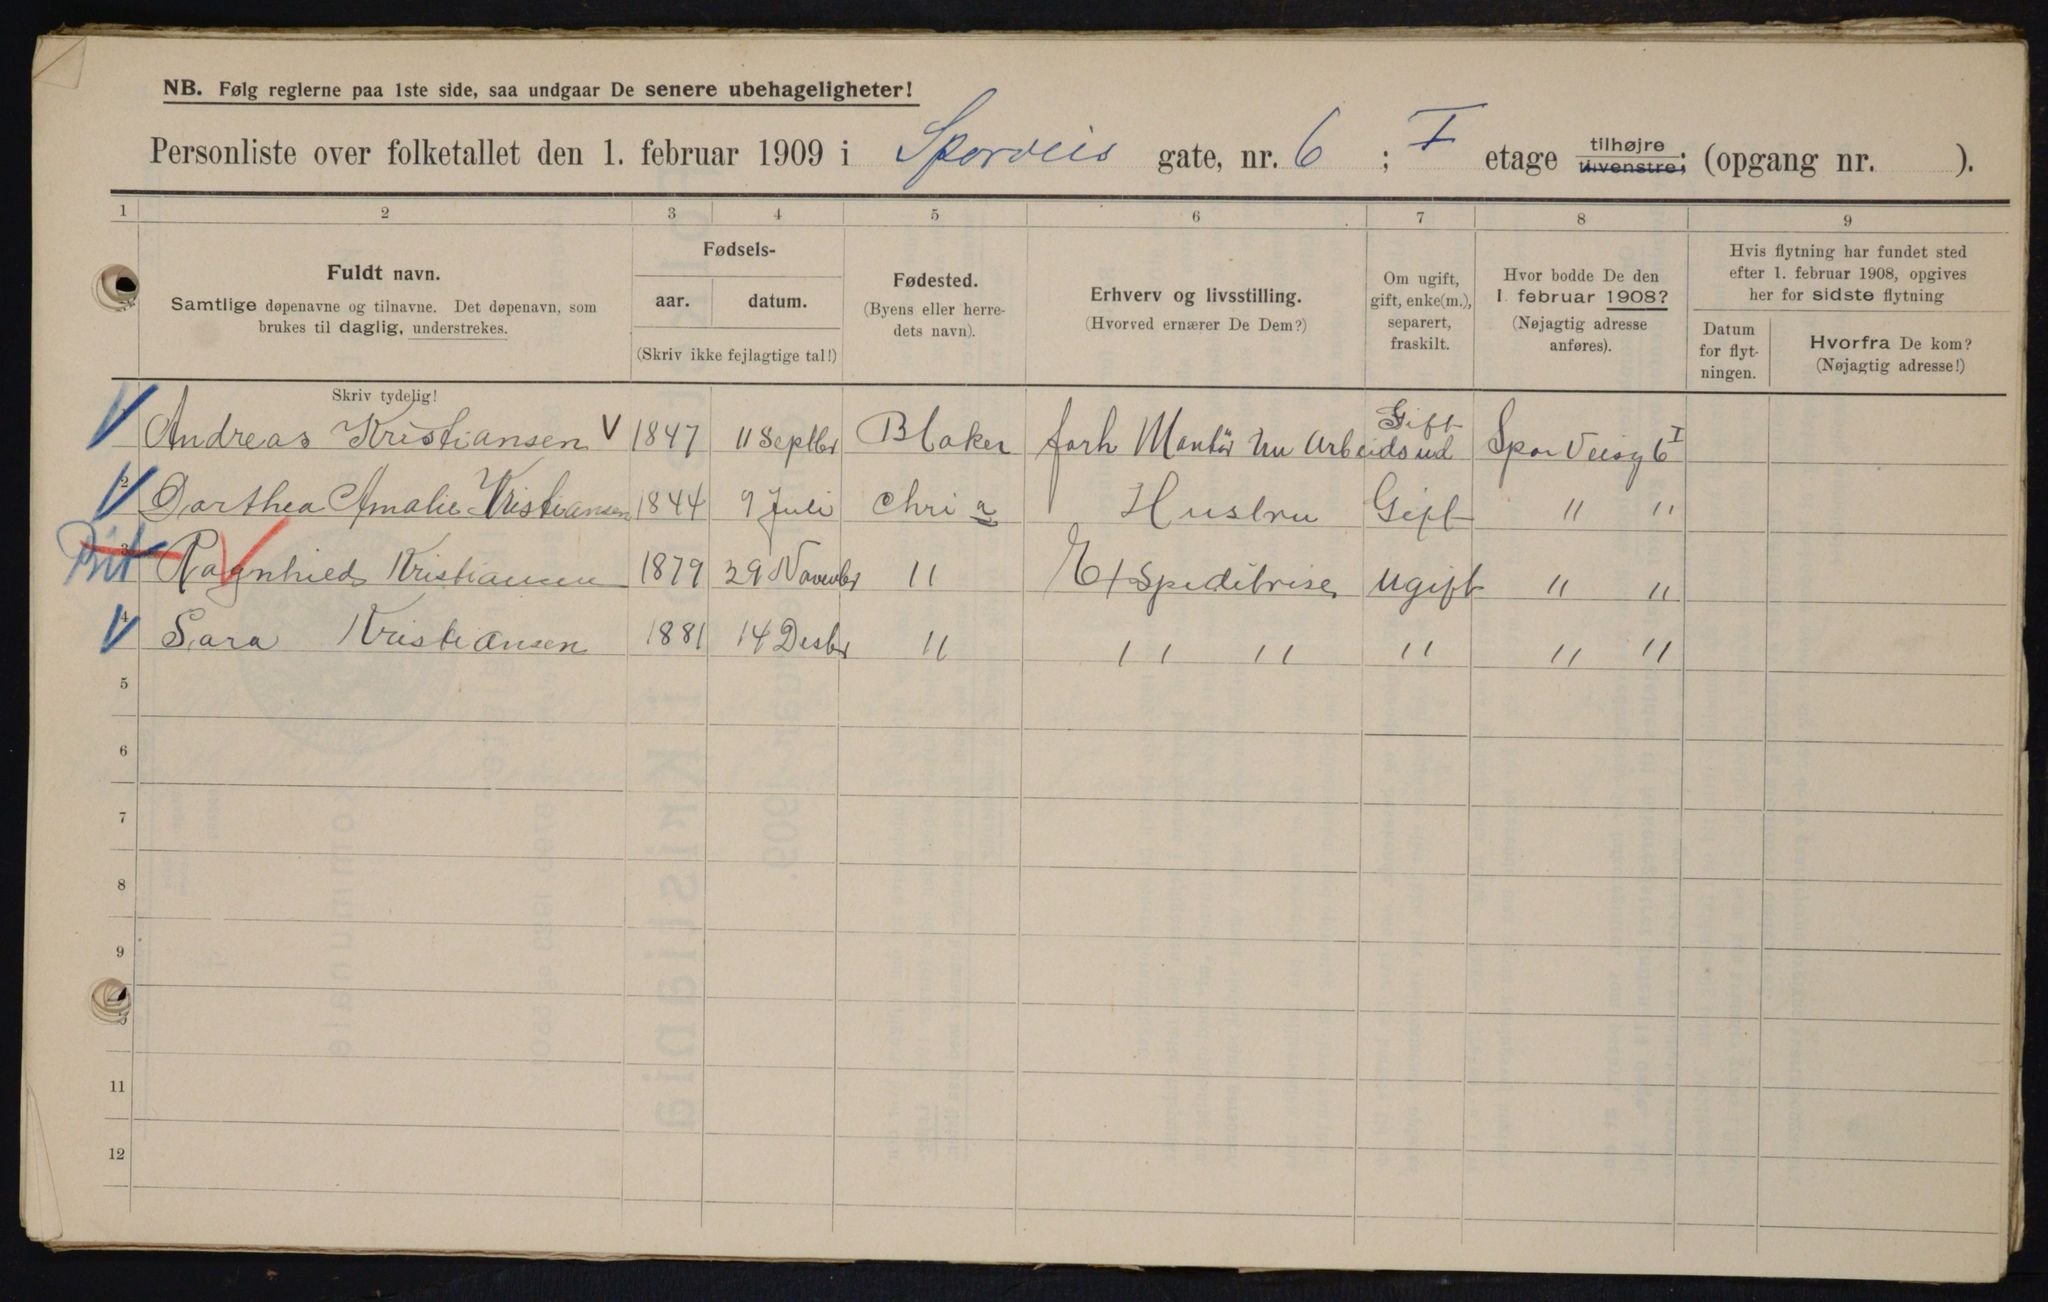 NB. Følg reglerne paa 1ste side, saa undgaar De senere ubehageligheter!
Personliste over folketallet den 1. februar 1909 i Sporveis gate, nr. 6 ; I etage tilhøjre tilvenstre; (opgang nr. ).
1 2 3 4 5 6 7 8 9
Fuldt navn.
Samtlige døpenavne og tilnavne. Det døpenavn, som
brukes til daglig, understrekes.
Skriv tydelig!
Fødsels-
aar. datum.
(Skriv ikke fejlagtige tal!)
Fødested.
(Byens eller herre-
dets navn).
Erhverv og livsstilling.
(Hvorved ernærer De Dem?)
Om ugift,
gift, enke(m.),
separert,
fraskilt.
Hvor bodde De den
1. februar 1908?
(Nøjagtig adresse
anføres).
Hvis flytning har fundet sted
efter 1. februar 1908, opgives
her for sidste flytning
Datum
for flyt-
ningen.
Hvorfra De kom?
(Nøjagtig adresse!)
Andreas Kristiansen V 1847 11 Septbr Blaker forh Montør nu Arbeidsud Gift Spor Veisg 6 I
2 Dorthea Amalie Kristiansen 1844 9 Juli Chria Hustru Gift " "
3 Ragnhild Kristiansen 1879 29 Novembr " Exspeditrise Ugift " "
4 Sara Kristiansen 1881 14 Desbr " " " " " "
5
6
7
8
9
11
12